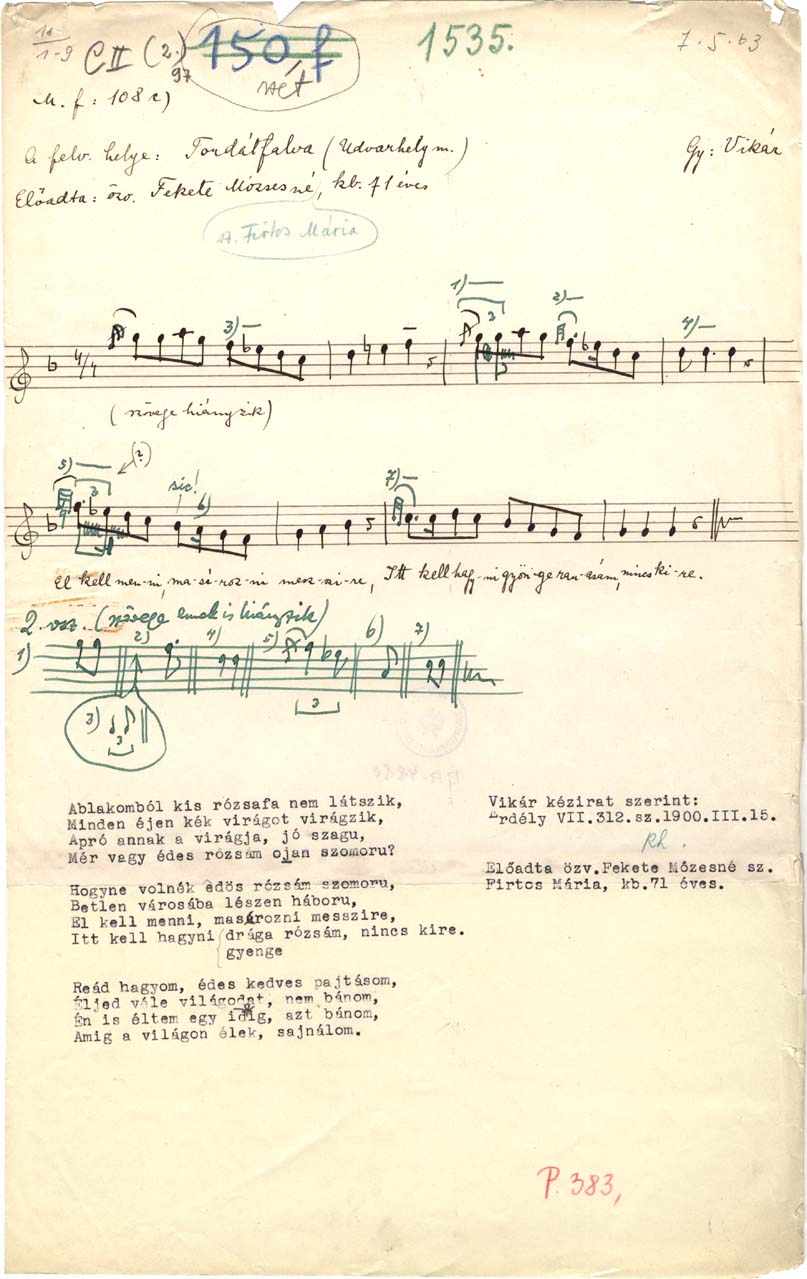 11
1-9
C II (2.)
97
150 f
vét
1535.
7.5.63
M. f: 108 c)
A felv. helye: Tordátfalva (Udvarhely m.)
Gy: Vikár
Előadta: özv. Fekete Mózsesné, kb. 71 éves
sz. Firtos Mária
1)
3
2)
3)
4)
4/4
(szövege hiányzik)
5)
(?)
3
sic!
6)
7)
El kell men-ni, ma-sé-roz-ni mesz-szi-re, Itt kell hagy-ni gyön-ge ró-zsám, nincs ki-re.
2. vsz. (szövege ennek is hiányzik)
1) 2) 4) 5) 6) 7)
3
3)
3
Ablakomból kis rózsafa nem látszik,
Minden éjen kék virágot virágzik,
Apró annak a virágja, jó szagu,
Mér vagy édes rózsám ojan szomoru?
Vikár kézirat szerint:
Erdély VII.312.sz.1900.III.15.
Rh.
Előadta özv.Fekete Mózesné sz.
Firtos Mária, kb.71 éves.
Hogyne volnék èdös rózsám szomoru,
Betlen városába lészen háboru,
El kell menni, masérozni messzire,
Itt kell hagyni drága rózsám, nincs kire.
gyenge
Reád hagyom, édes kedves pajtásom,
Éljed véle világodat, nem bánom,
Én is éltem egy idig, azt bánom,
Amig a világon élek, sajnálom.
P. 383,